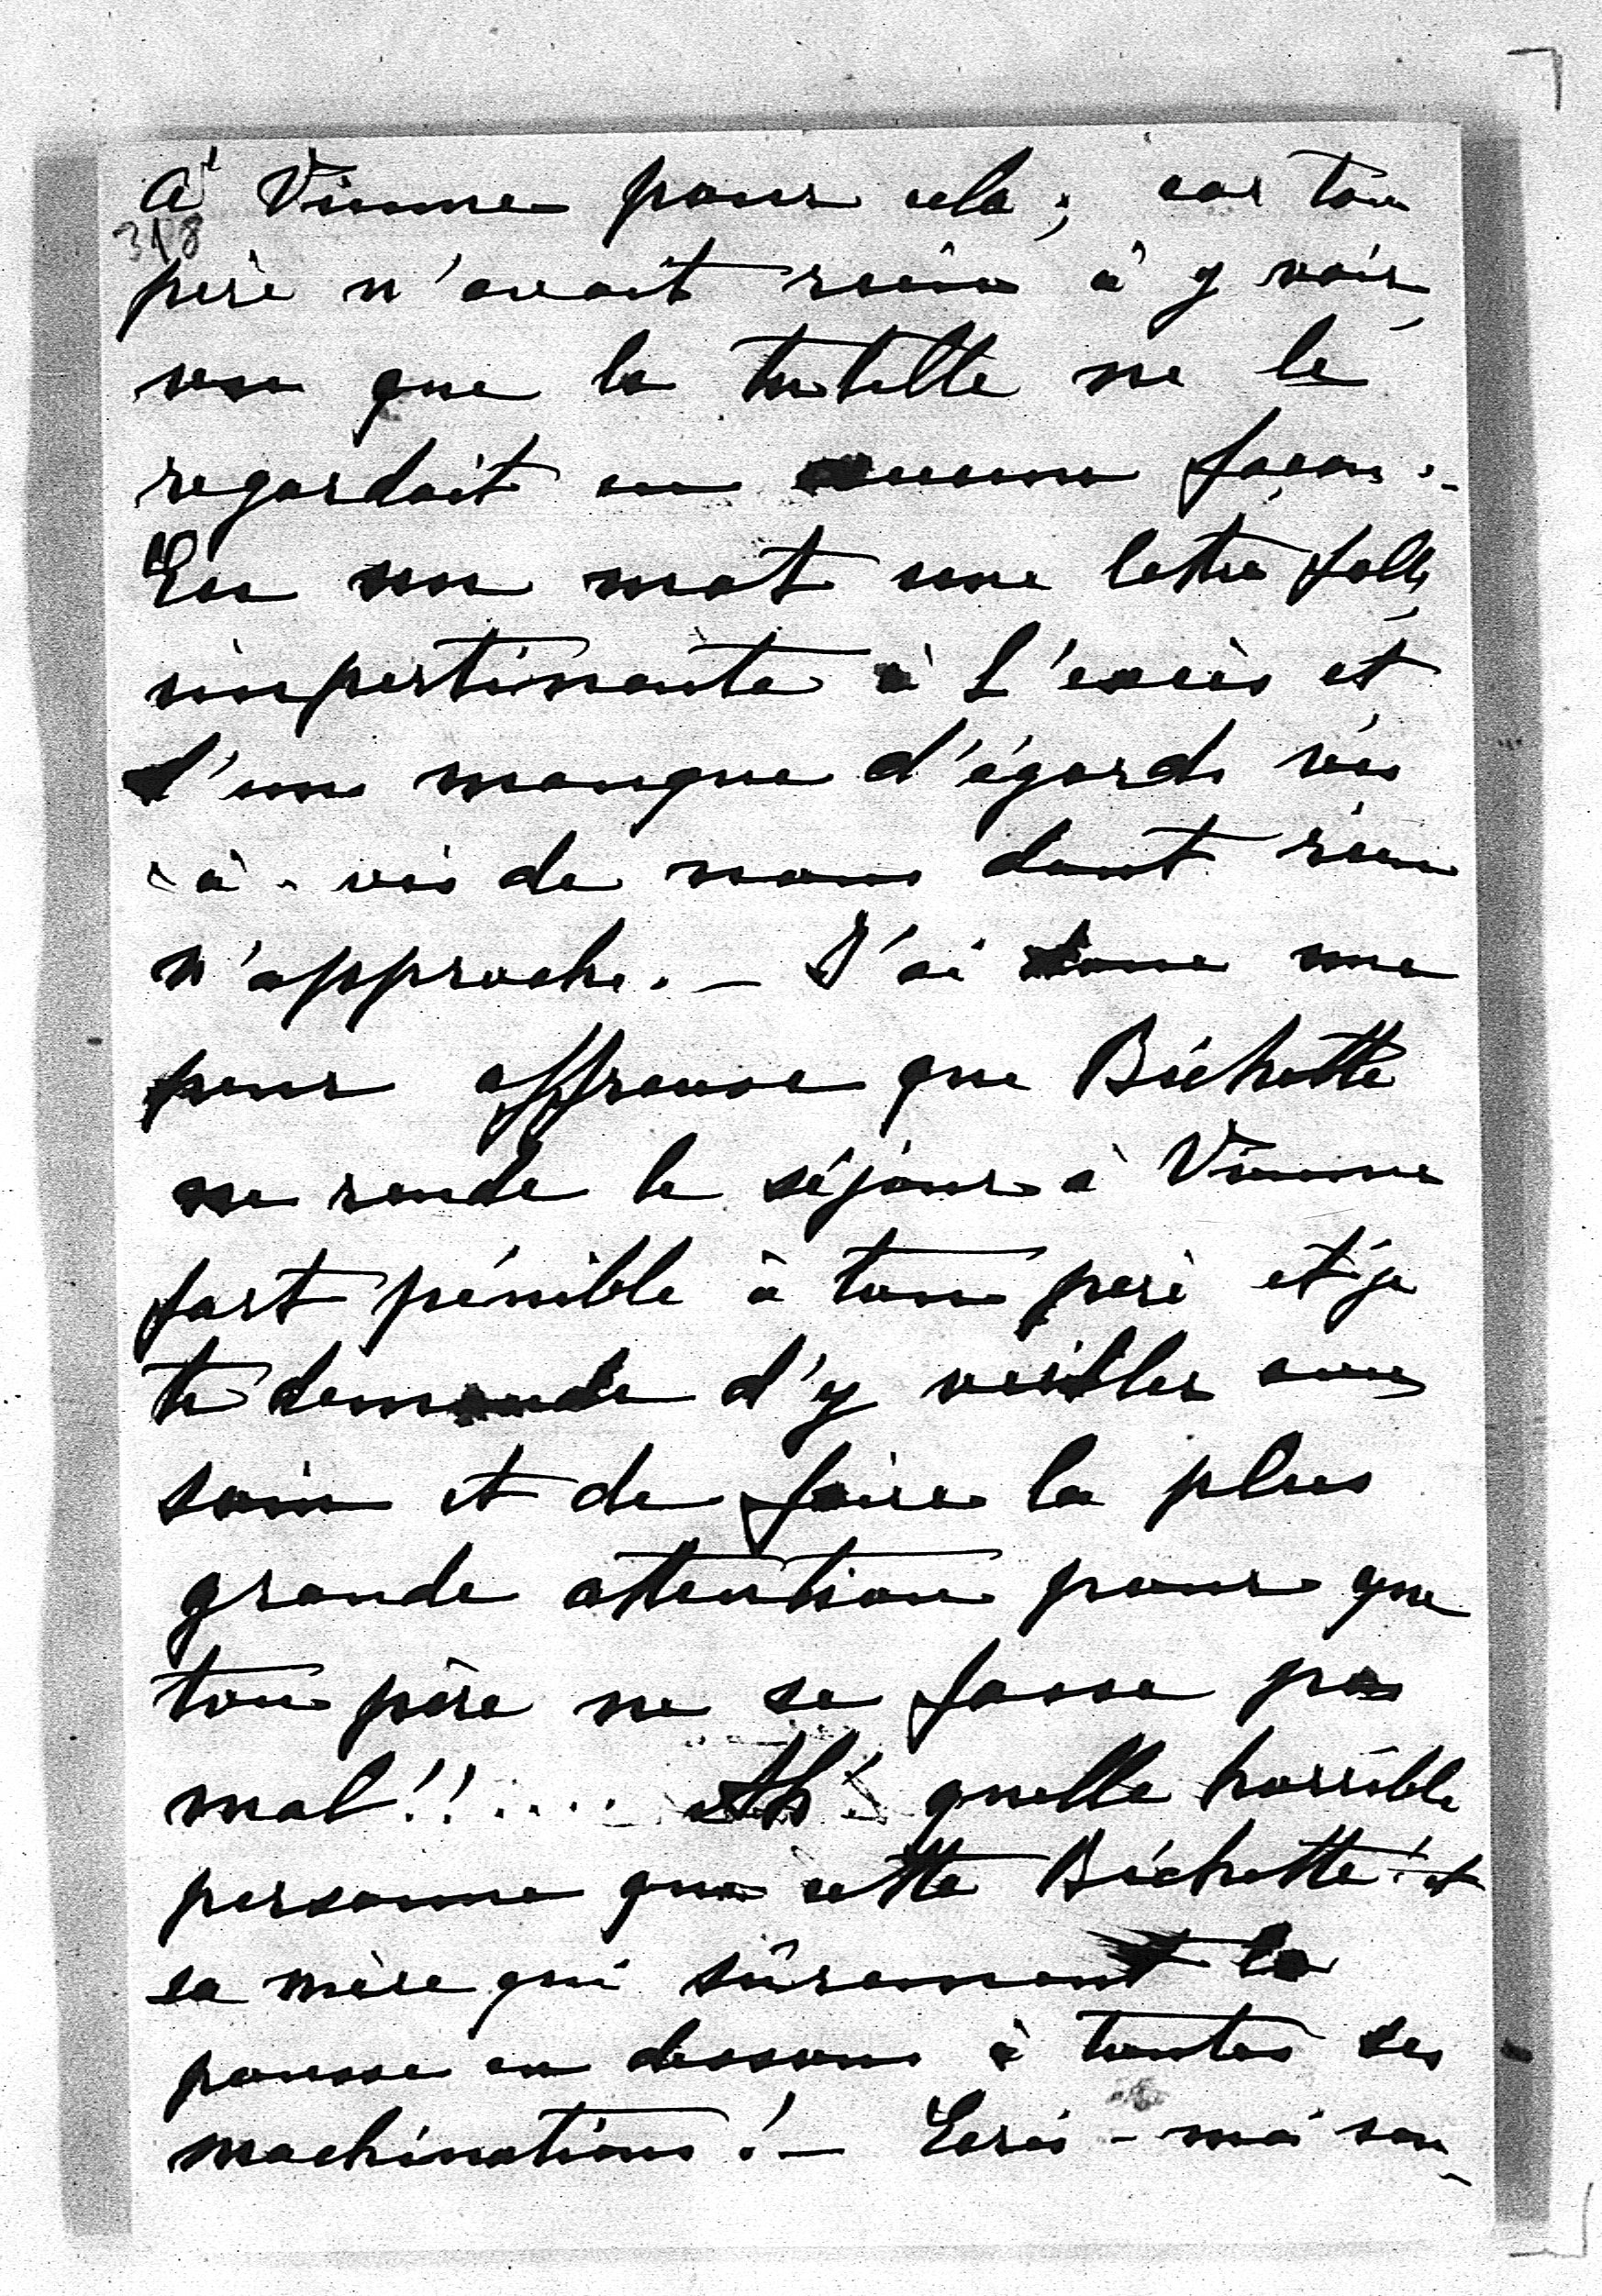 à Vienne pour cela ; car ton
318
père n'avait rien à y voir,
vu que la tutelle ne le
regardait en aucune façon. -
En un mot une lettre folle,
impertinante à l'excès et
d'un manque d'égards vis
-à-vis de nous dont rien
n'approche. - J'ai donc une
peur affreuse que Bichette
ne rende le séjour à Vienne
fort pénible à ton père et je
te demande d'y veiller avec
soin et de faire la plus
grande attention pour que
ton père ne se fasse pas
mal !! .... Ah ! quelle horrible
personne que cette Bichette ! et
sa mère qui sûrement la
pousse en dessous à toutes ses
machinations ! - Ecris-moi sou-